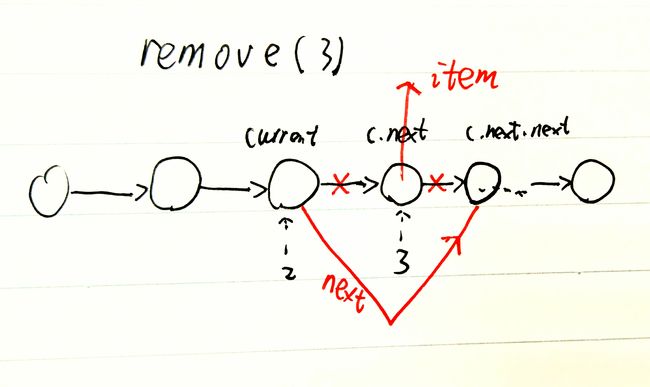 remove(3)
item
current c.next c.next.next
2 3
next